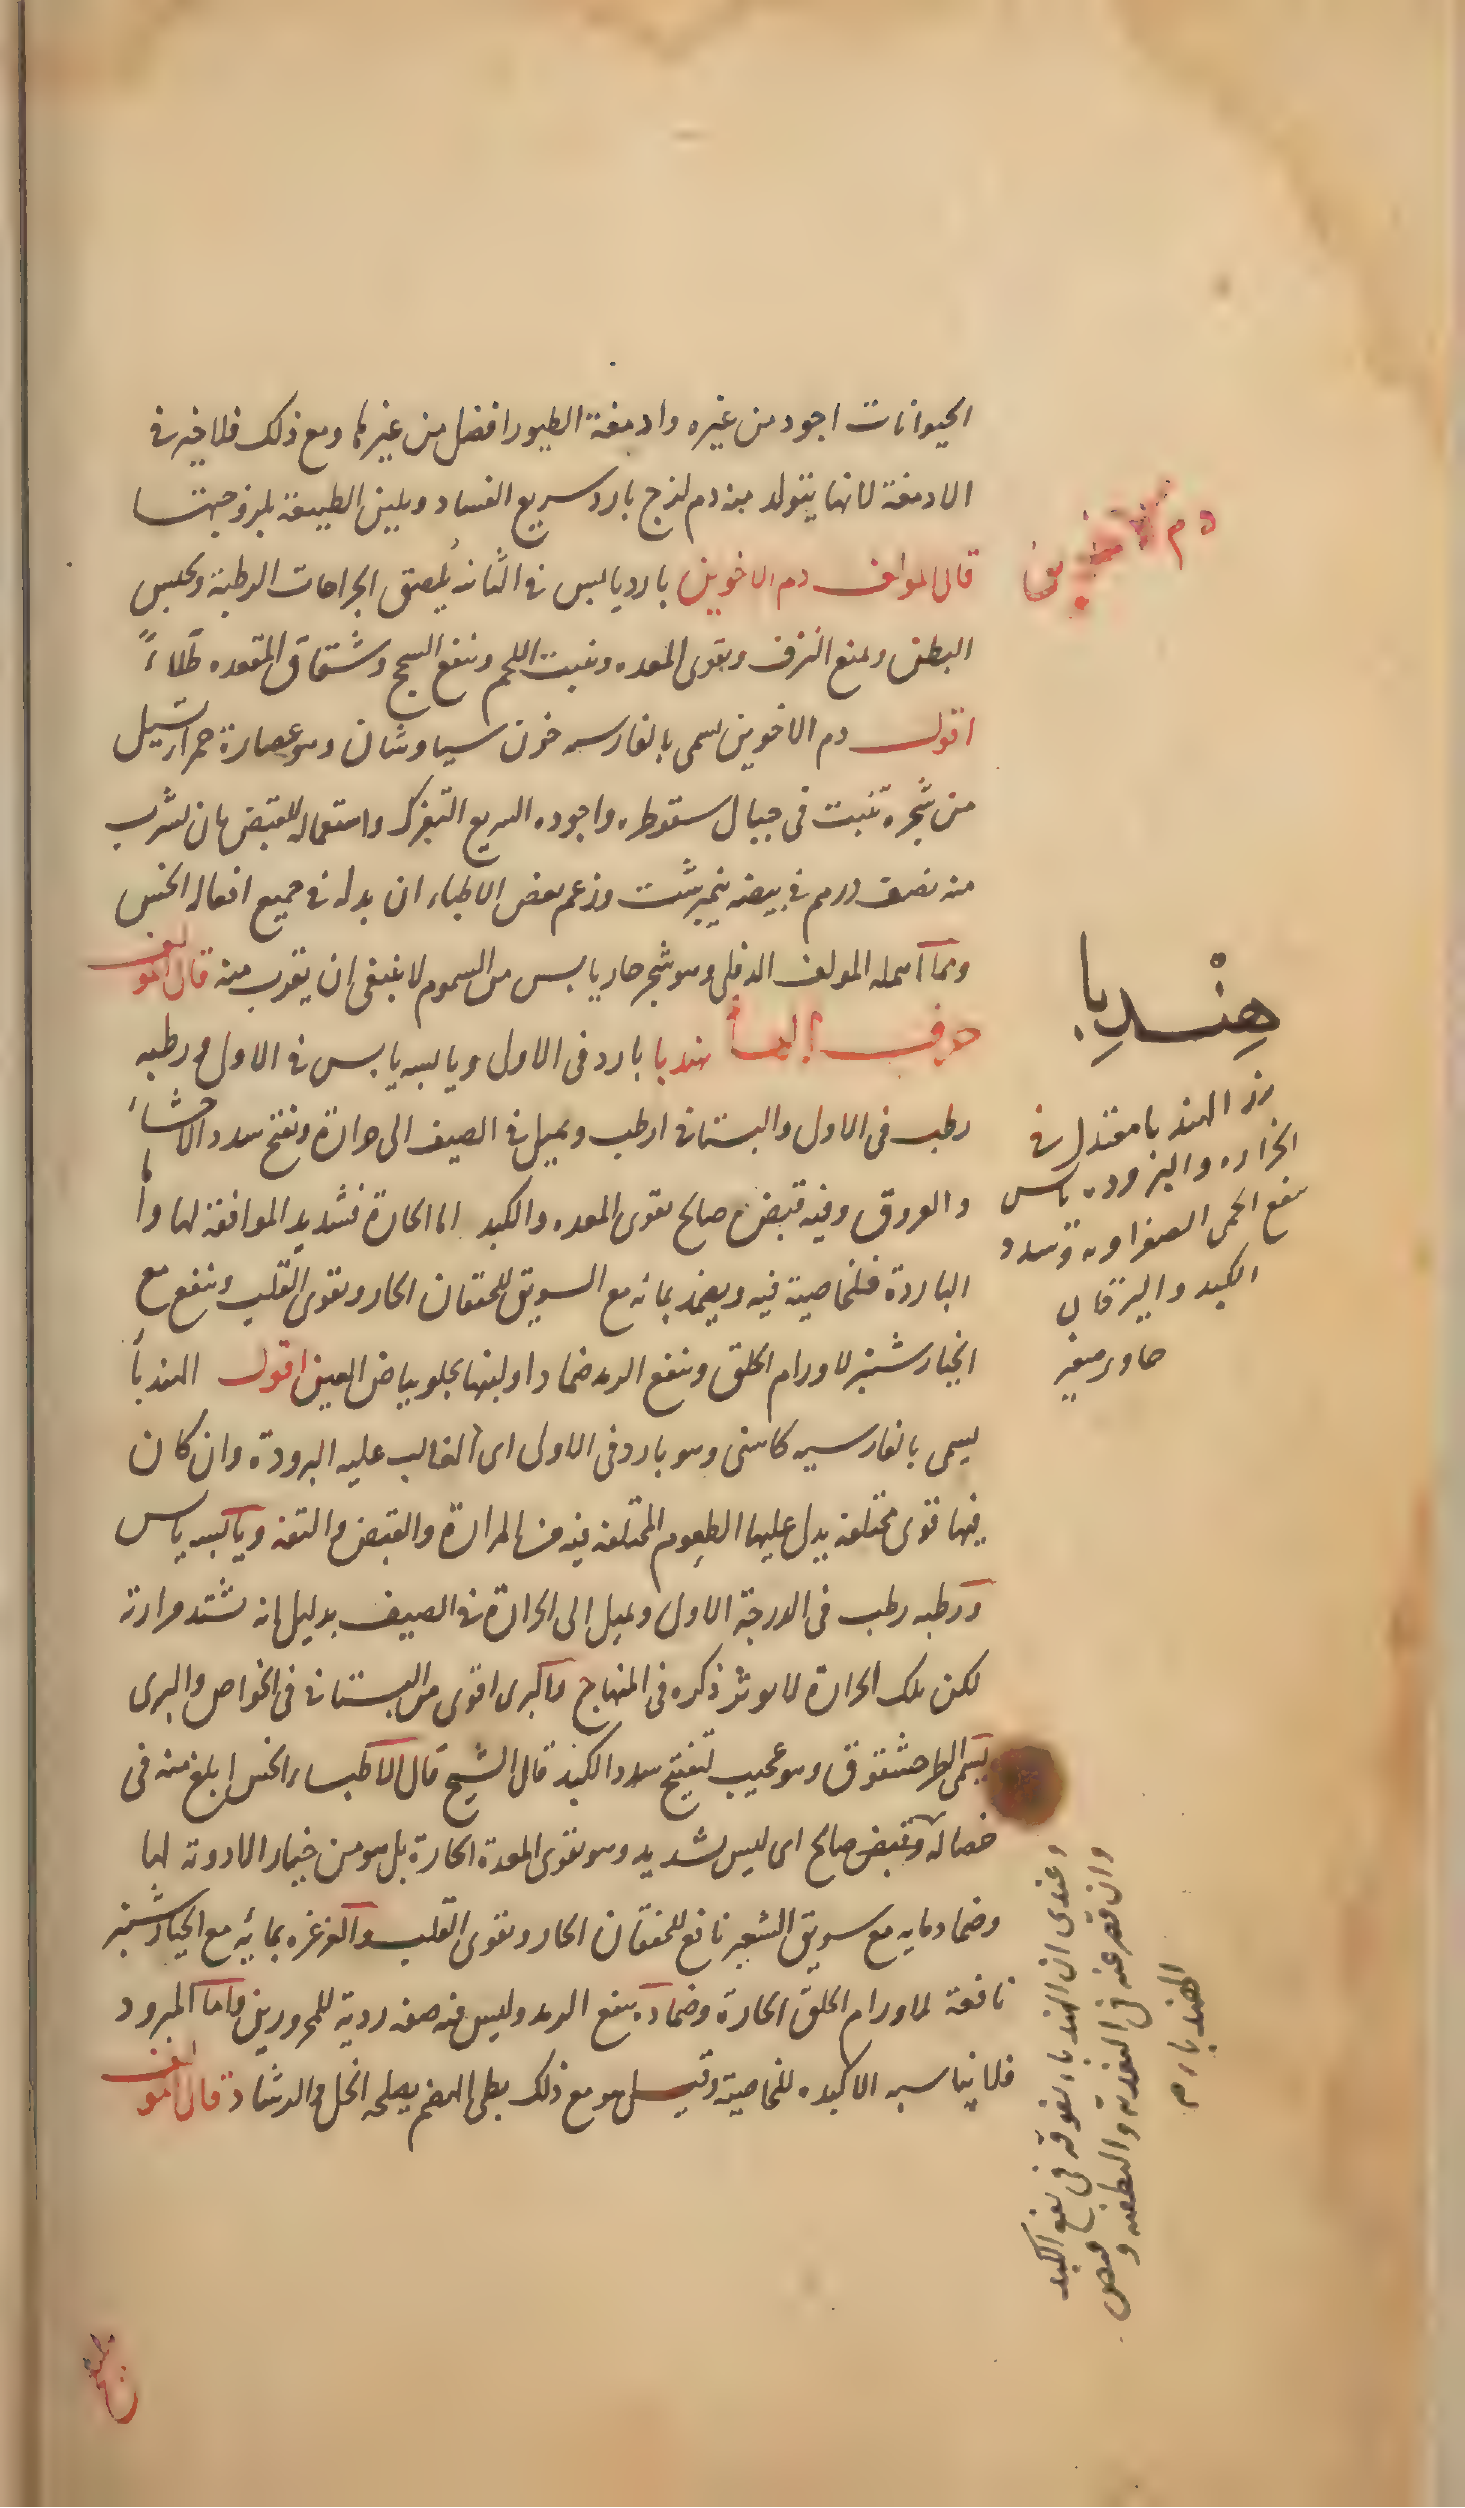 الحيوانات اجود من غيره وادمغة الطيور افضل من غيرها ومع ذلك فلا خير فى
الادمغة لانها يتولد منه دم لزج بارد سريع الفساد ويلين الطبيعة بلزوجتها
قال المولف دم الاخوين بارد يابس فى الثانيه يلصق الجراحات الرطبة ويحبس
البطن ويمنع النزف ويقوى المعده وينبت اللحم وينفع السحج وشقاق المقعده طلاءً
اقول دم الاخوين يسمى بالفارسيه خون سياوشان وهو عصارة حمرا تسيل
من شجره تنبت فى جبال سقوطره واجوده السريع التفرك واستعماله للقبض بان يشرب
منه نصف درهم فى بيضه نيمبرشت وزعم بعض الاطباء ان بدله فى جميع افعاله الخس
ومما اهمله المولف الدفلى وهو شجر حار يابس من السموم لا ينبغى ان يقرب منه قال المولف
حرف الهاء هندبا بارد فى الاول ويابسه يابس فى الاول ورطبه
رطب فى الاول والبستانى ارطب ويميل فى الصيف الى حرارة ويفتح سدد الاحشاء
والعروق وفيه قبض صالح يقوى المعده والكبد اما الحارة فشديد الموافقة لها واما
الباردة فلخاصية فيه ويضمد بمائه مع السويق للخفقان الحار ويقوى القلب وينفع مع
الخيار شنبر لاورام الحلق وينفع الرمد ضمادا ولبنها يجلو بياض العين اقول الهندبا
يسمى بالفارسيه كاسنى وهو بارد فى الاولى اى الغالب عليه البرودة وان كان
فيها قوى مختلفه يدل عليها الطعوم المختلفه فيه من المرارة والقبض والتفه ويابسه يابس
ورطبه رطب فى الدرجة الاولى ويميل الى الحرارة فى الصيف بدليل انه تشتد مرارته
لكن تلك الحرارة لا يوثر ذكره فى المنهاج والبرى اقوى من البستانى فى الخواص والبرى
يسمى الطرحشقوق وهو عجيب لتفتيح سدد الكبد قال الشيخ قال الاطباء الخس ابلغ منه فى
خصاله وقبض صالح اى ليس بشديد وهو يقوى المعدة الحارة بل هو من خيار الادويه لها
وضماد مايه مع سويق الشعير نافع للخفقان الحار ويقوى القلب والغرغره بمائه مع الخيارشنبر
نافعة لاورام الحلق الحارة وضماده ينفع الرمد وليس فيه صفه ردية للمحرورين واما المبرود
فلا يناسبه الا كبده للخاصية وقيل هو مع ذلك بطى الهضم يصلحه الخل والرشاد قال المولف
دم الاخوين
هِنْدِبا
بزر الهندبا معتدل فى
الحراره والبروده يابس
ينفع الحمى الصفراويه وسدد
الكبد واليرقان
حاوى صغير
وعندى ان الهندباء يفوقه فى نفع الكبد
وان قصر عنه فى التغذية والتطفيه و
الهندباء م